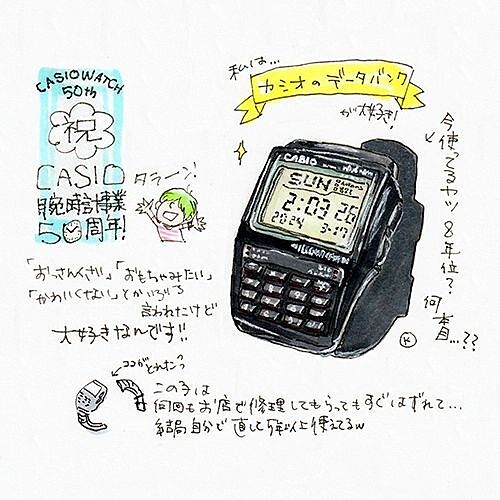 CASIO WATCH
50th
祝
CASIO
腕時計事業
50周年!
タラーン!
私は…
カシオのデータバンク
が大好き!
CASIO
SUN
2:03 26
2024 3-17
今使ってるヤツ
8年位?
何育…??
「おっさんくさい」「おもちゃみたい」
「かわいくない」とかいろいろ
言われたけど
大好きなんです!!
ココがとれたん?
この子は
何回もお店で修理してもらってもすぐはずれて…
結局自分で直して5年以上使えてるw